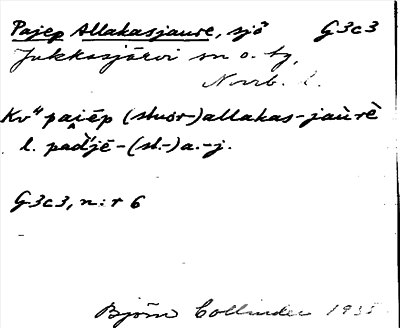 Pajep Allakasjaure, sjö G3c3
Jukkasjärvi sn o. tg,
Norrb. l.
Kv" paiēp (stuor-)allakas-jaùrè
l. pad'jē-(st.-)a.-j.
G3c3, n:r 6
Björn Collinder 1935